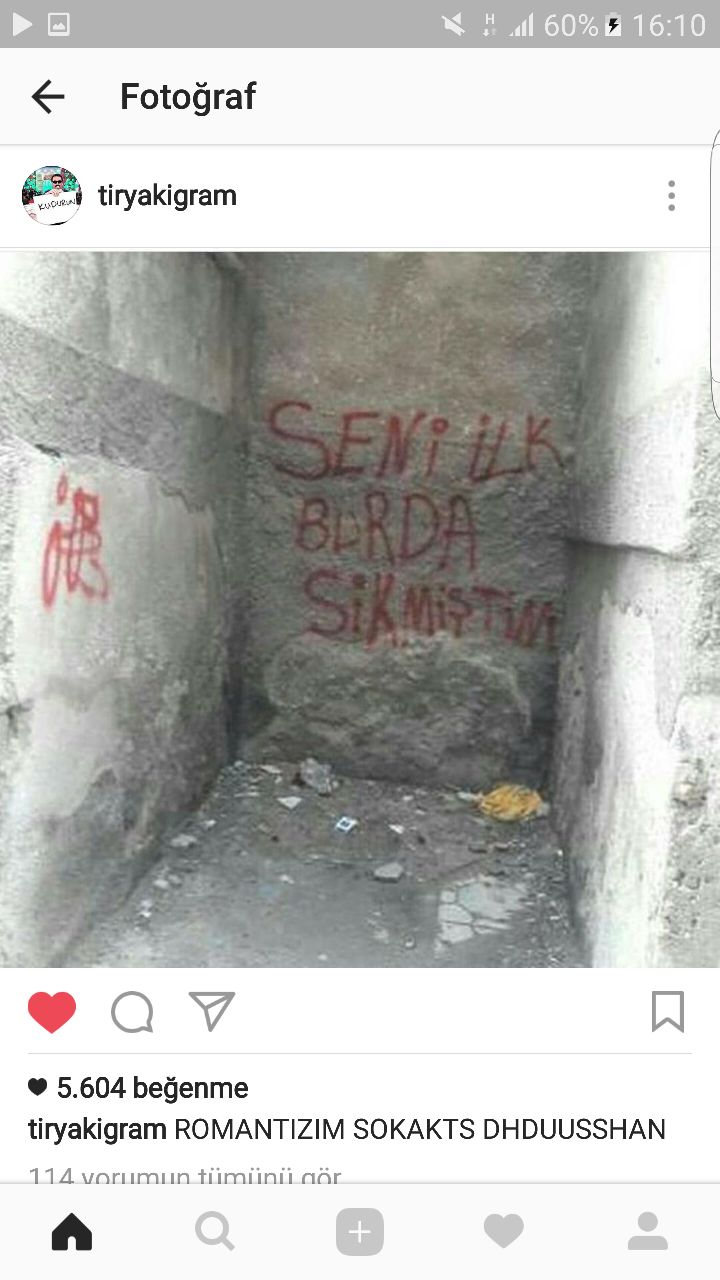 60% 16:10
Fotoğraf
KUDURUN
tiryakigram
SENİ İLK
BURDA
SİKMİŞTİM
5.604 beğenme
tiryakigram ROMANTIZIM SOKAKTS DHDUUSSHAN
114 yorumun tümünü gör